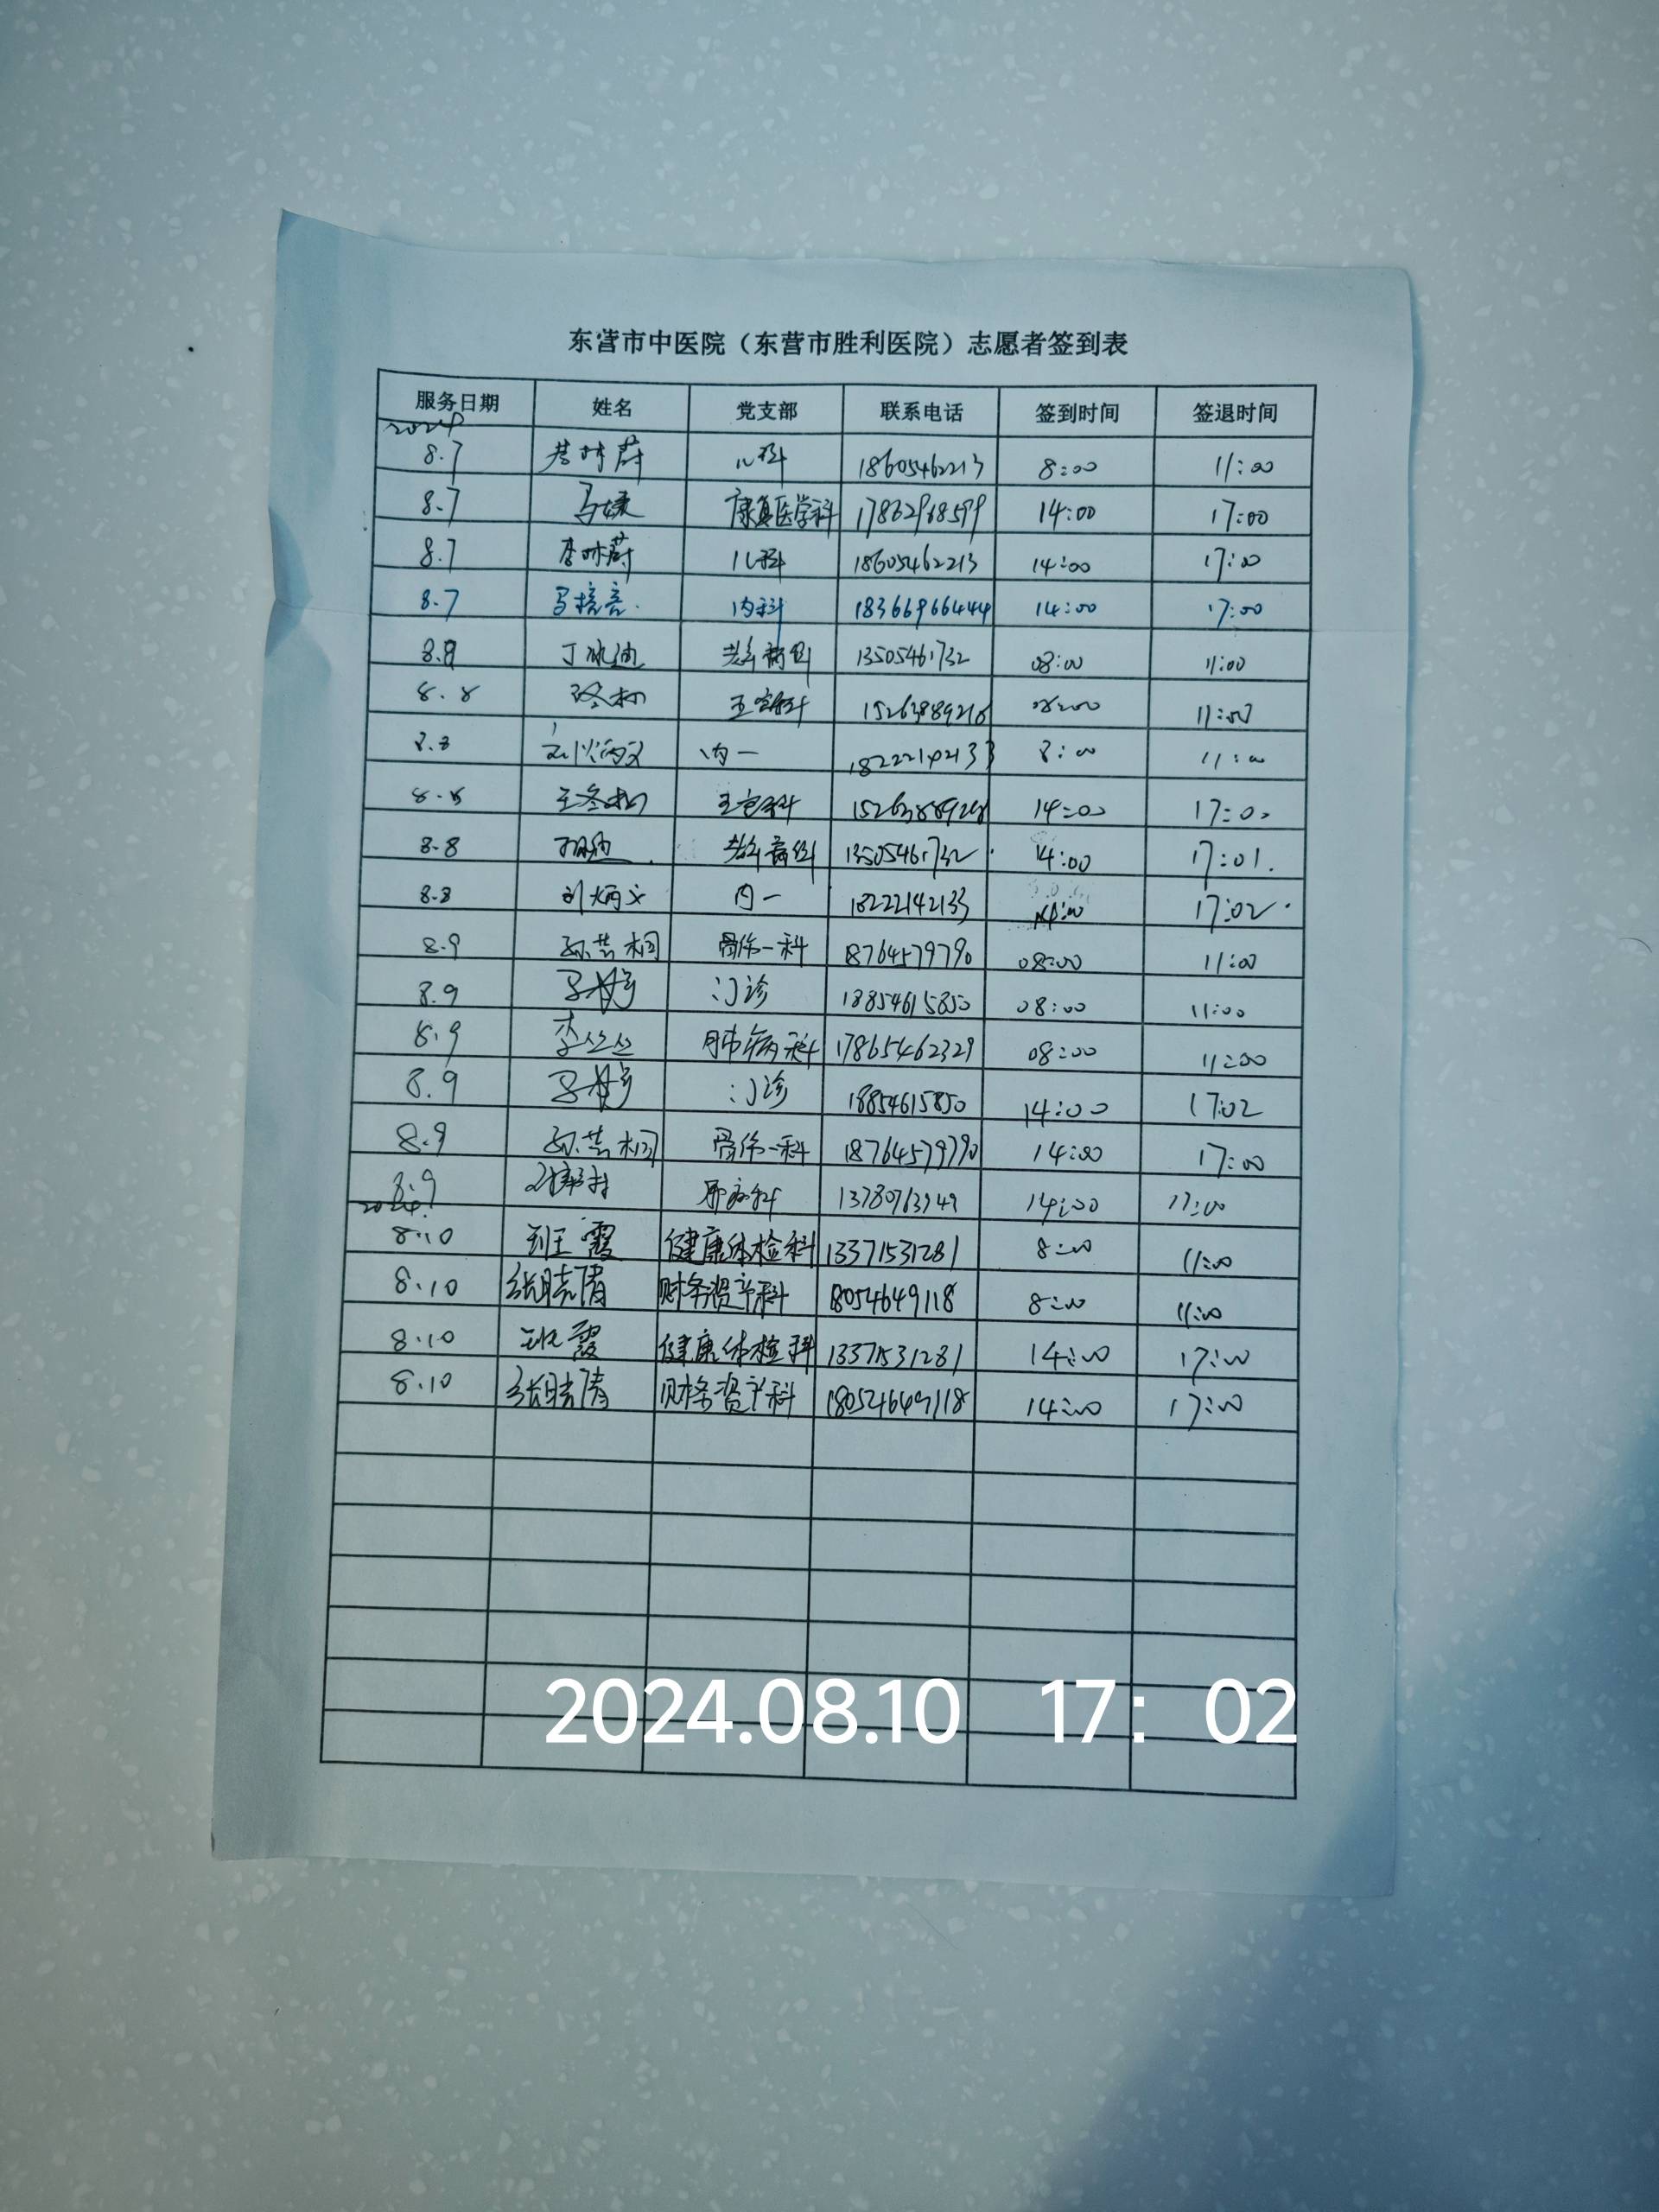 东营市中医院（东营市胜利医院）志愿者签到表
服务日期 姓名 党支部 联系电话 签到时间 签退时间
2024
8.7 儿科 18605462213 8:00 11:00
8.7 马媛 康复医学科 17862968599 14:00 17:00
8.7 儿科 18605462213 14:00 17:00
8.7 马培亮 内科 18366966444 14:00 17:00
8.8 老年病科 13505461732 08:00 11:00
8.8 15263889218 08:00 11:00
8.8 刘炳文 内一 18222142133 8:00 11:00
8.8 王冬梅 15263889218 14:00 17:00
8.8 老年病科 13505461732 14:00 17:01.
8.8 刘炳文 内一 18222142133 14:00 17:02
8.9 骨伤一科 18764579790 08:00 11:00
8.9 门诊 18854615850 08:00 11:00
8.9 李丝丝 肺病科 17865462329 08:00 11:00
8.9 门诊 18854615850 14:00 17:02
8.9 骨伤一科 18764579790 14:00 17:00
8.9 13780763949 14:00 17:00
2024.
8.10 班霞 健康体检科 13371531281 8:00 11:00
8.10 张晓倩 财务资产科 18054649118 8:00 11:00
8.10 班霞 健康体检科 13371531281 14:00 17:00
8.10 张晓倩 财务资产科 18054649118 14:00 17:00
2024.08.10 17：02